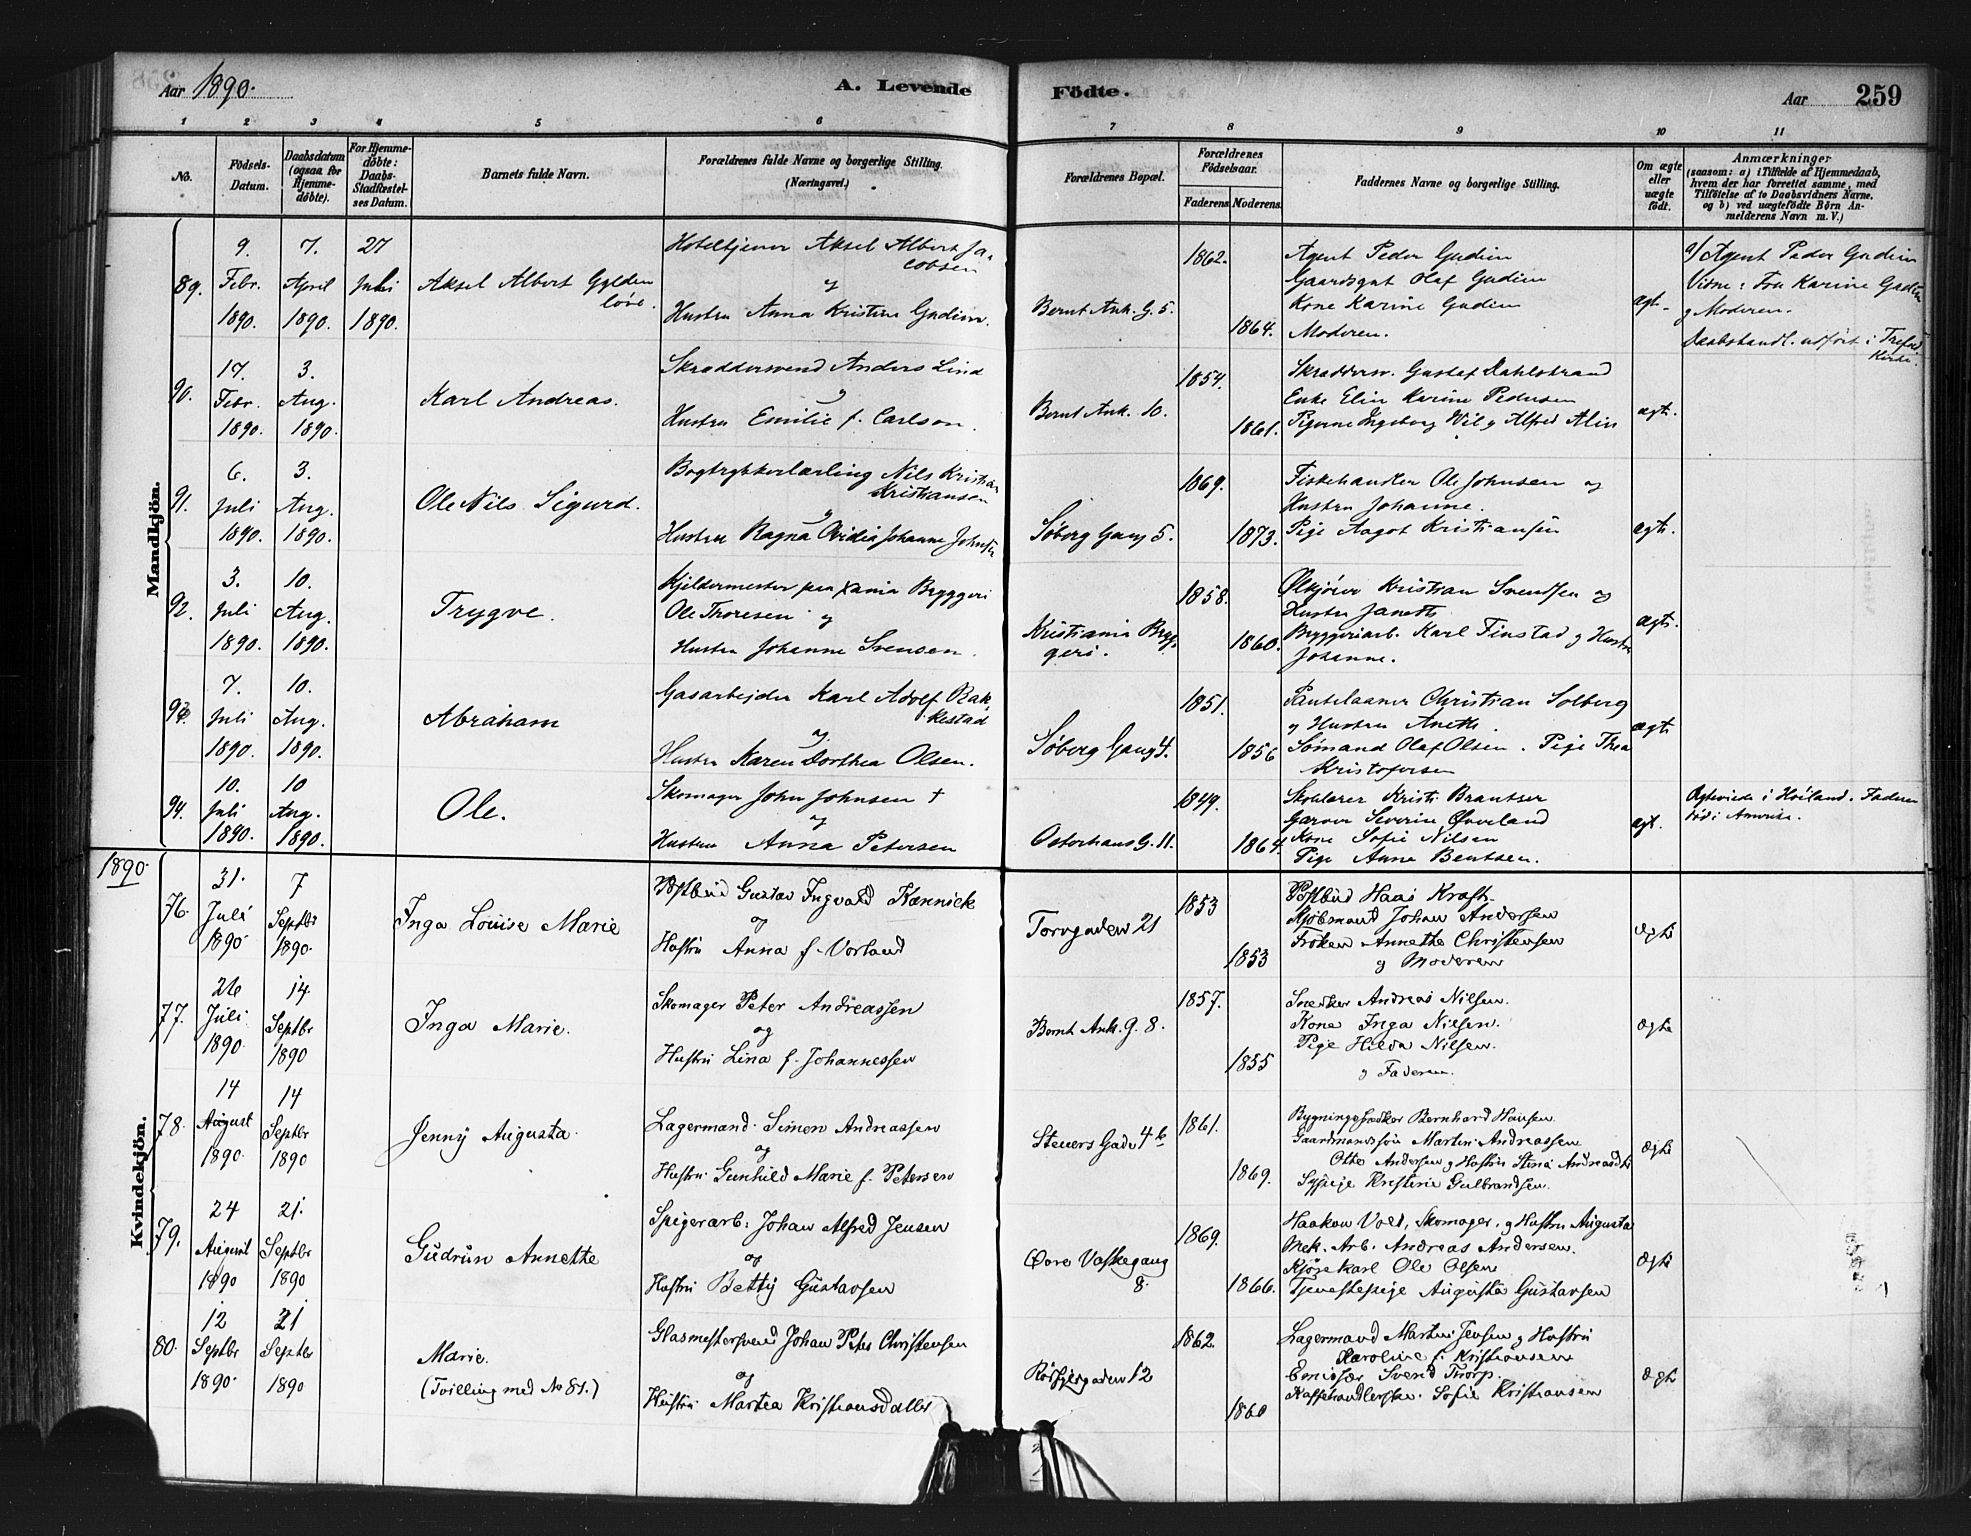 Aar 1890.
A. Levende Födte.
Aar 259
1 2 3 4 5 6 7 8 9 10 11
No.
Födsels-
Datum.
Daabsdatum
(ogsaa for
Hjemme-
döbte).
For Hjemme-
döbte:
Daabs-
Stadfæstel-
ses Datum.
Barnets fulde Navn.
Forældrenes fulde Navne og borgerlige Stilling.
(Næringsvei.)
Forældrenes Bopæl.
Forældrenes
Födselsaar.
Faderens Moderens.
Faddernes Navne og borgerlige Stilling.
Om ægte
eller
uægte
født.
Anmærkninger
(saasom: a) i Tilfælde af Hjemmedaab,
hvem der har forrettet samme, med
Tilföielse af to Daabsvidners Navne.
og b) ved uægtefödte Börn An-
melderens Navn m. V.)
Mandkjön.
89.
9.
Febr.
1890.
7.
April
1890.
27
Juli
1890.
Aksel Albert Gylden
löve.
Hoteltjener Aksel Albert Ja-
cobsen
og
Hustru Anna Kristine Gudim.
Bernt Ank. G. 5.
1862.
1864.
Agent Peder Gudim
Gaardsgut Olaf Gudim
Kone Karine Gudim
Moderen.
ægt.
a/ Agent Peder Gudim
Vidne: Fru Karine Gudim
og Moderen.
Daabshandl. udført i Trefold.
Kirke.
90.
17.
Febr.
1890.
3.
Aug.
1890.
Karl Andreas.
Skræddersvend Anders Lind
og
Hustru Emilie f. Carlson.
Bernt Ank. 10.
1854.
1861.
Skræddersv. Gustaf Dahlstrand
Enke Elin Karine Pedersen
Pigerne Ingeborg Wil og Alfred Alin
ægt.
91.
6.
Juli
1890.
3.
Aug.
1890.
Ole Nils Sigurd.
Bogtrykkerlærling Nils Kristian
Kristiansen
og
Hustru Ragna Ovidia Johanne Johnsen
Söberg Gang 5.
1869.
1873.
Fiskehandler Ole Johnsen og
Hustru Johanne.
Pige Aagot Kristiansen
ægt.
92.
3.
Juli
1890.
10.
Aug.
1890.
Trygve.
Kjeldermester paa Xania Bryggeri
Ole Thoresen og
Hustru Johanne Svensen.
Kristiania Bryg-
geri.
1858.
1860.
Ølkjører Kristian Svendsen og
Hustru Janeth
Bryggeriarb. Karl Finstad og Hustru
Johanne.
ægt.
93.
7.
Juli
1890.
10.
Aug.
1890.
Abraham
Gasarbejder Karl Adolf Bak-
kestad
og
Hustru Karen Dorthea Olsen.
Söberg Gang 4.
1851.
1856
Pantelaaner Christian Solberg
og Hustru Aneth.
Sömand Olaf Olsen. Pige Thea
Kristofersen
ægt.
94.
10.
Juli
1890.
10
Aug.
1890.
Ole.
Skomager John Johnsen †
og
Hustru Anna Petersen
Osterhaus G. 11.
1849.
1864.
Skolelærer Kristi. Brantser
Garver Severin Øveland
Kone Sofie Nilsen
Pige Anne Bentsen.
ægt.
Ægteviede i Höiland. Faderen
död i Amerika.
1890.
Kvindekjön.
76.
31.
Juli
1890
7
Septbr
1890.
Inga Louise Marie
Postbud Gustav Ingvald Kennick
og
Hustru Anna f. Vorland
Torvgaden 21
1853
1853
Postbud Haas Kraft.
Kjöbmand Johan Andersen
Fröken Annethe Christensen
og Moderen
Ægte
77.
26
Juli
1890.
14
Septbr
1890
Inga Marie.
Skomager Peter Andreassen
og
Hustru Lina f. Johannessen
Bernt Ank. G. 8.
1857.
1855
Snedker Andreas Nilsen.
Kone Inga Nielsen.
Pige Hilda Nilsen.
og Faderen.
Ægte
78.
14
August
1890.
14
Septbr
1890
Jenny Augusta.
Lagermand Simon Andreassen
og
Hustru Gunhild Marie f. Petersen
Steners Gade 4b
1861.
1869.
Bygningssnedker Bernhard Hansen
Gaardmandssön Martin Andreassen
Otto Andersen og Hustru Stina Andreasdtr
Sypige Kristine Gulbrandsen.
Ægte
79.
24
August
1890
21.
Septbr
1890
Gudrun Annette
Spigerarb: Johan Alfred Jensen
og
Hustru Betty Gustavsen
Övre Vaskegang
8.
1869.
1866.
Haakon Vold, Skomager, og Hustru Augusta
Mek. Arb. Andreas Andersen.
Kjörekarl Ole Olsen
Tjenestepige Augusta Gustavsen
Ægte
80.
12
Septbr
1890
21
Septbr
1890
Marie.
(Tvilling med No 81.)
Glasmestersvend Johan Peter Christensen
og
Hustru Martea Kristiansdatter
Rörsgaden 12
1862.
1860
Lagermand Martin Jensen og Hustru
Karoline f. Kristiansen
Emissær Svend Thorp.
Kaffehandlerske Sofie Kristiansen
Ægte